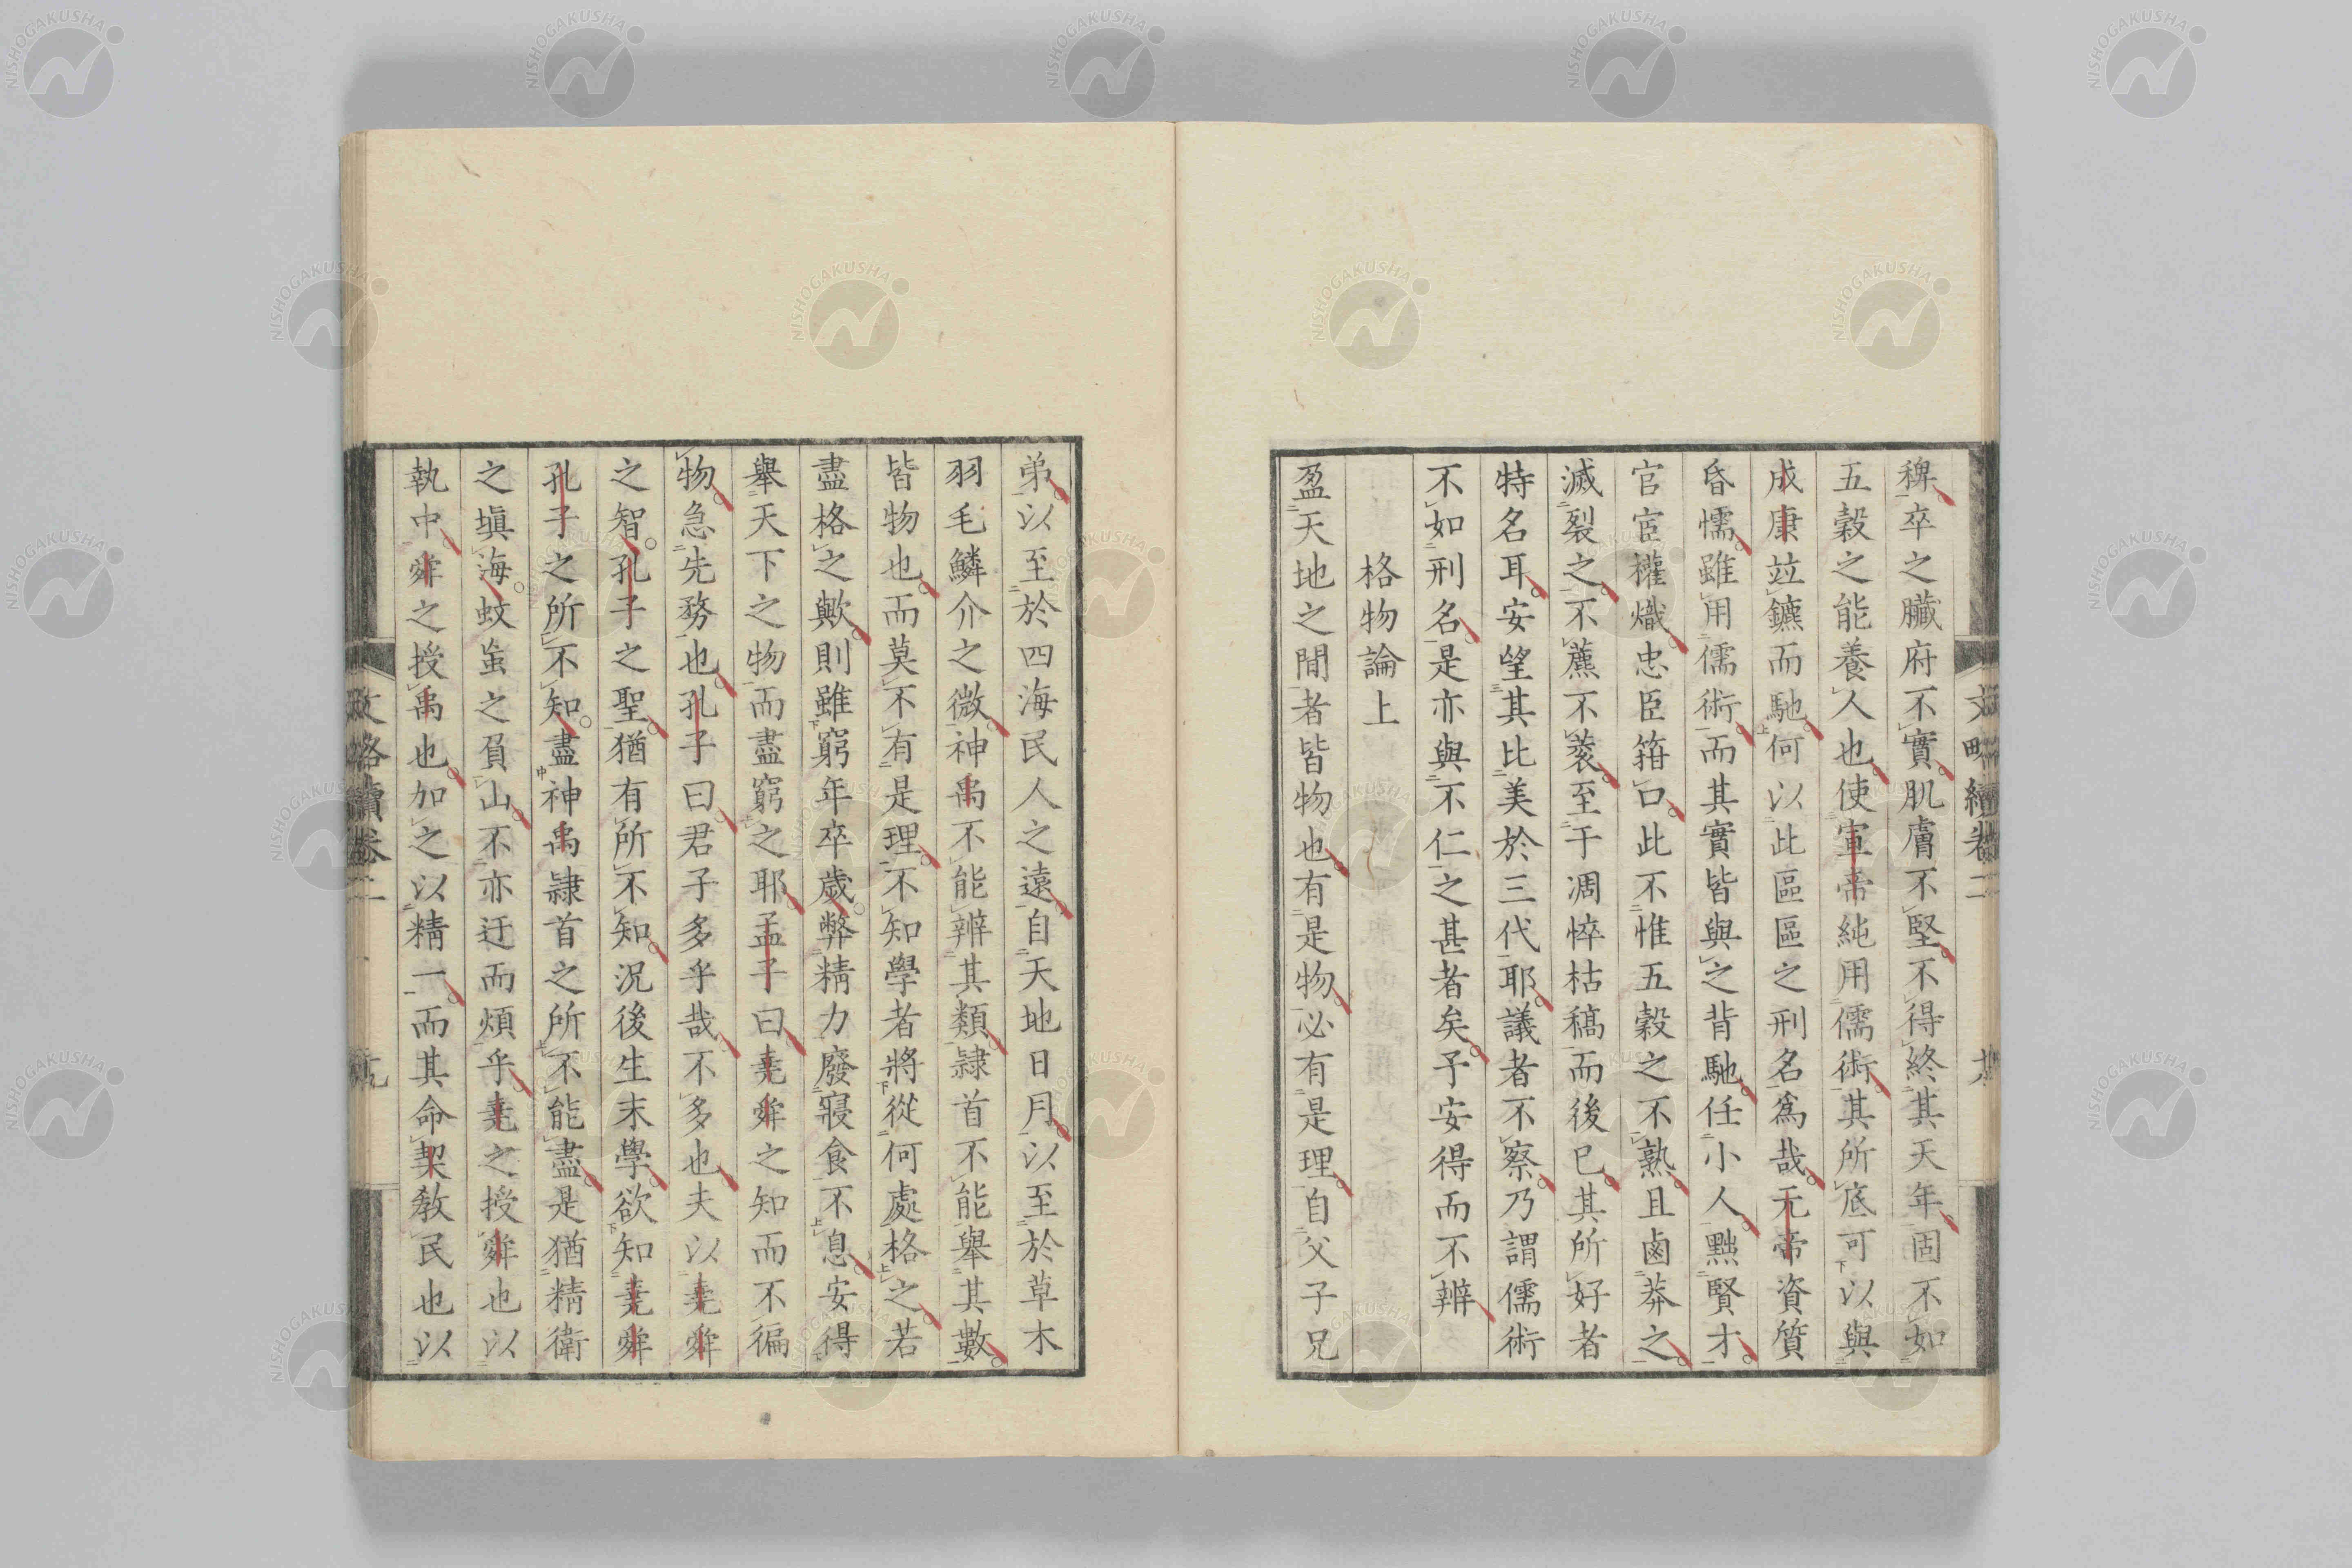 稗卒之臟府不實肌膚不堅不得終其天年固不如
五穀之能養人也使宣帝純用儒術其所底可以與
成康竝鑣而馳何以此區區之刑名爲哉元帝資質
昏懦雖用儒術而其實皆與之背馳任小人黜賢才
官宦權熾忠臣箝口此不惟五穀之不熟且鹵莽之
滅裂之不藨不蓘至于凋悴枯稿而後已其所好者
特名耳安望其比美於三代耶議者不察乃謂儒術
不如刑名是亦與不仁之甚者矣予安得而不辨
格物論上
盈天地之間者皆物也有是物必有是理自父子兄
弟以至於四海民人之遠自天地日月以至於草木
羽毛鱗介之微神禹不能辨其類隷首不能舉其數
皆物也而莫不有是理不知學者將從何處格之若
盡格之歟則雖窮年卒歲弊精力廢寢食不息安得
舉天下之物而盡窮之耶孟子曰堯舜之知而不徧
物急先務也孔子曰君子多乎哉不多也夫以堯舜
之智孔子之聖猶有所不知況後生末學欲知堯舜
孔子之所不知盡神禹隷首之所不能盡是猶精衛
之塡海蚊虻之負山不亦迂而煩乎堯之授舜也以
執中舜之授禹也加之以精一而其命契敎民也以
文略續卷二
文略續卷二